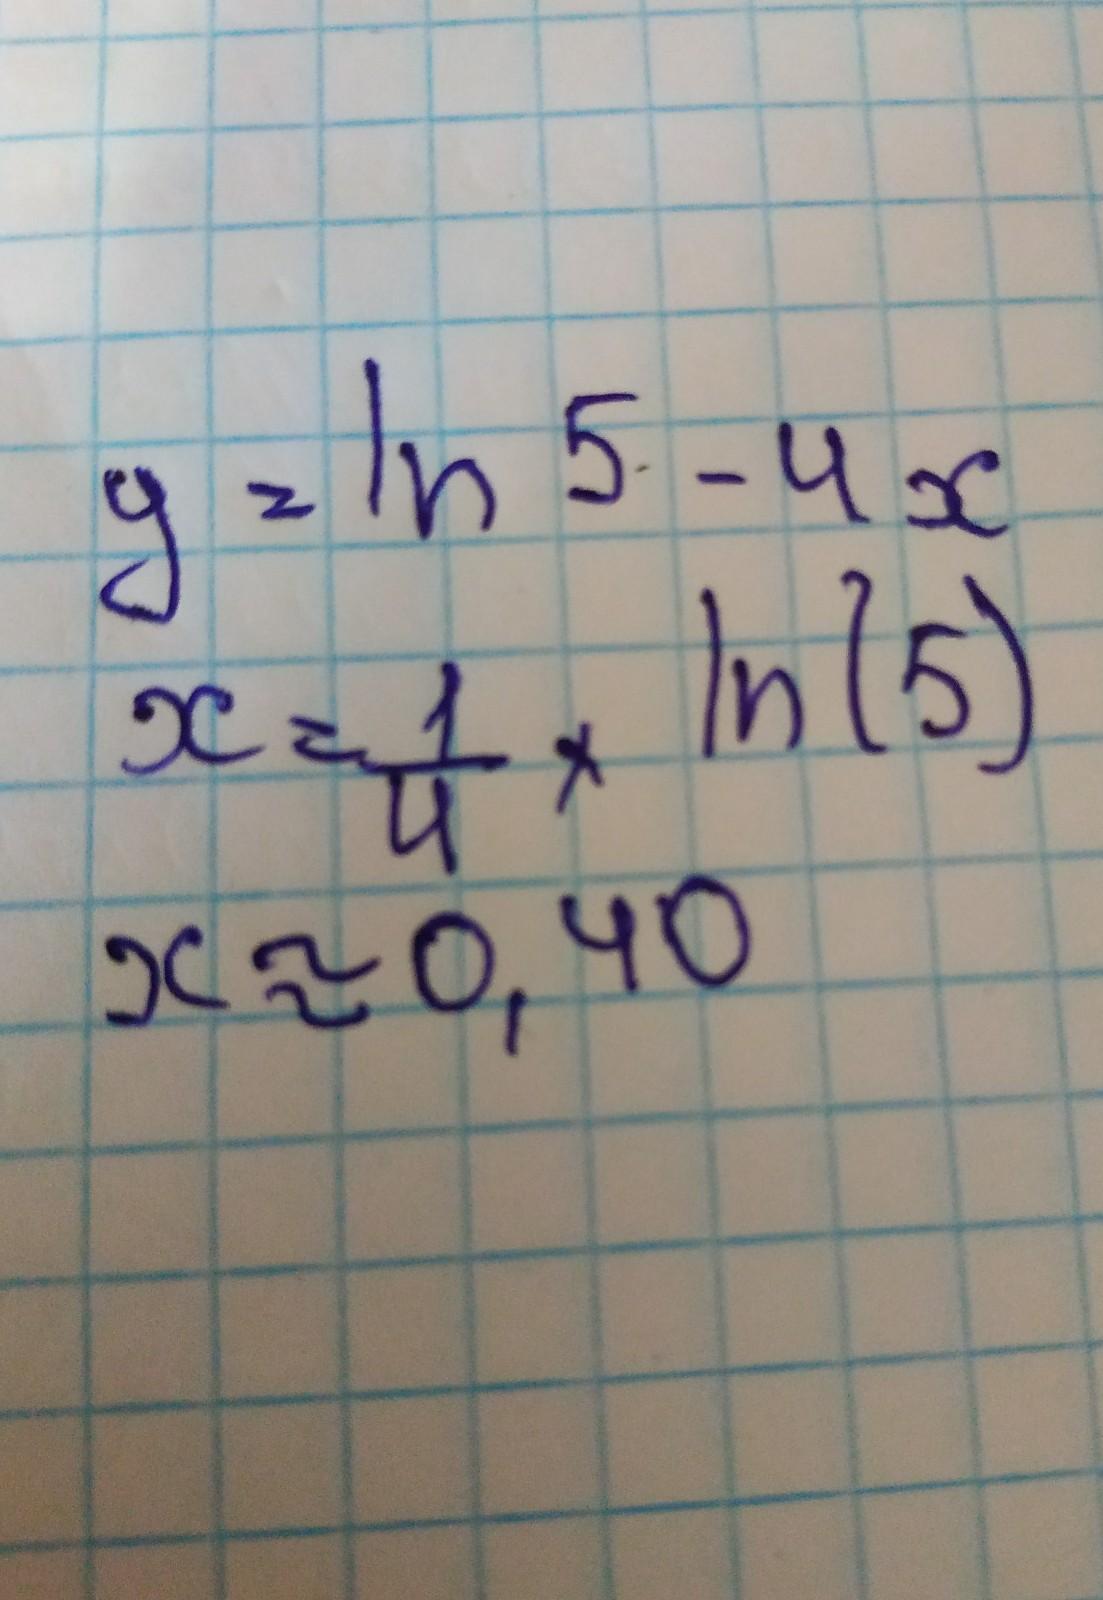 y = ln 5 - 4x
x = 1/4 * ln(5)
x ≈ 0,40